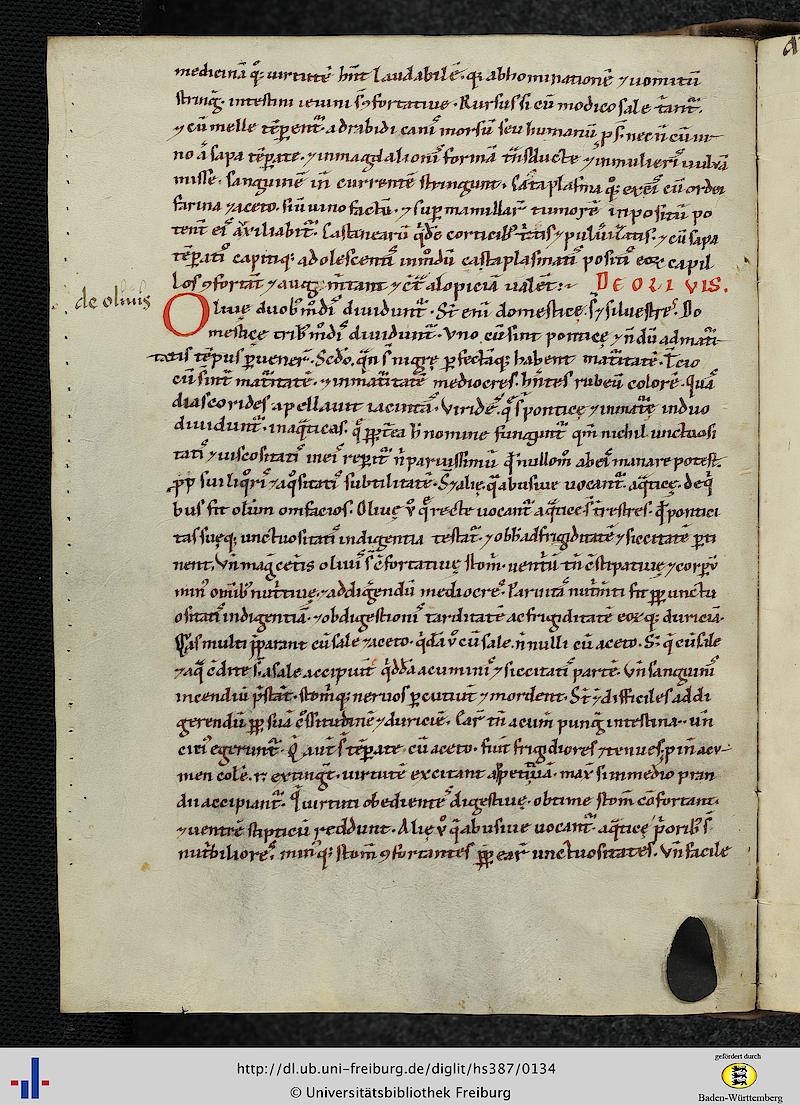 medicinā qꝫ uirtutē hn̄t laudabilē. qꝫ abhominationē ⁊ uomitū
strinḡ. intestini ieiuni s̄ ꝯfortatiue. Rursus si cū modico sale t̄ant̄.
⁊ cū melle tēꝑent̄. ad rabidi canis morsū seu humanū ꝑs̄. nec n̄ cū ui
no ā sapa tēꝑate. ⁊ in magdalionis formā
misse. sanguinē in currentē stringunt. Cataplasma qꝫ ex eis cū ordei
farina ⁊ aceto. siū uino factū. ⁊ suꝑ mamillarū tumorē inpositū po
tent̄ eis auxiliabit̄. Castanearū q̄de corticibꝫ
tēꝑatis capitiqꝫ adolescentū in modū cataplasmatis positis eoꝝ capil
los ꝯfortāt ⁊ auḡmtant ⁊ alopiciā ualent: DE OLIVIS.
de oliuis
Oliue duobꝫ mōdis diuidunt̄. St̄ eni domestice. s̄ ⁊ siluestres. Do
mestice tribꝫ mōdis diuidunt̄. Vno cū sint pontice ⁊ n̄dū ad matu
ritatis tēpus ꝑuener̄. Scdo. qn̄ s̄ nigrę ꝑfectāqꝫ habent matitatē. Tcio
cū sint matitatē. ⁊ inmatitatē mediocres. hn̄tes rubeū colorē. quā
diascorides apellauit iacintā. Viridēs q̄ s̄ ponticę ⁊ inmatę in duo
diuidunt̄. in aq̄ticas. q̄ ꝓptea h nomine fungunt̄ qm̄ nichil unctuosi
tatis ⁊ uiscositatis in eis reperit̄ n̄ paruissimū q̄ nullom̄ ab eis manare potest.
ꝓp sui liq̄ris ⁊ aq̄sitatis subtilitatē. S̄ ⁊ alię. q̄ abusiue uocant̄. aq̄ticę. de q̄
bus fit olūm omfacios. Oliuę v̄ q̄ recte uocant̄ aq̄ticę s̄ t̄restres. q̄ pontici
tas suęqꝫ unctuositatis indigentia testat̄. ⁊ ob h̄ ad frigiditatē ⁊ siccitatē ꝑti
nent. Vn̄ mag cet̄is oliuis s̄ ꝯfortatiuę stom̄. uent̄ū tn̄ ꝯstipatiuę ⁊ corꝑi
minꝰ omibꝫ nut̄tiue. ⁊ ad dig̅endū mediocrēs. Paruitas nut̄mti fit ꝓp unctu
ositatis indigentiā. ⁊ ob digestionis tarditatē ac frigiditatē eoꝝqꝫ duriciā.
Has multi ꝓparant cū sale ⁊ aceto. q̄dā v̄ cū sale. n̄ nulli cū aceto. S̄ q̄ cū sale
⁊ aq̄ ꝯdite s̄. a sale accipiūt q̄ddā acuminis ⁊ siccitatis partē. Vn̄ sanguinis
incendiū p̄stāt. stom̄qꝫ neruos ꝑcutiūt ⁊ mordent. St̄ ⁊ difficiles ad di
gerendū ꝓp suā ⁊ duriciē. Car̄ tn̄ acum̄ pung̅ intestina. un̄
citꝰ egerunt̄. Q̄ aut̄ s̄ tēꝑate cū aceto. fiūt frigidiores ⁊ tenues. ꝑ in acu
men colēric̄ extingt̄. uirtutē excitant apetitiuā. max̄ si in medio pran
dii accipiant̄. q̄ uirtutis obedientes digestiuę. obtime stom̄ confortant.
⁊ uentrē stipticū reddunt. Alię v̄ q̄ abusiue uocant̄. aq̄ticę p̄oribꝫ s̄
nut̄biliores. minꝰqꝫ stom̄ ꝯfortantes ꝓp ear̄ unctuositates. Vn̄ facile
http://dl.ub.uni-freiburg.de/diglit/hs387/0134
© Universitätsbibliothek Freiburg
gefördert durch
Baden-Württemberg